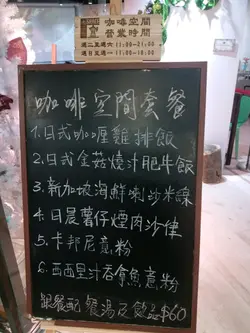 咖啡空間
營業時間
週二至週六 11:00-21:00
週日至週一 11:00-18:00
咖啡空間套餐
1.日式咖喱雞排飯
2.日式金菇燒汁肥牛飯
3.新加坡海鮮喇沙米線
4.日晨薯仔煙肉沙律
5.卡邦尼意粉
6.西西里汁吞拿魚意粉
跟餐配 餐湯及飲品 $60